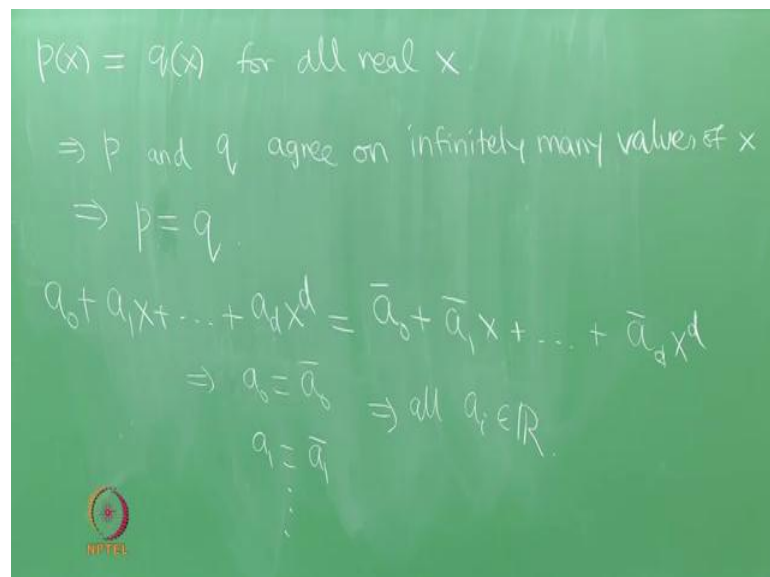 p(x) = q(x) for all real x
⇒ p and q agree on infinitely many values of x
⇒ p = q.
a₀ + a₁x + ... + a_d x^d = ā₀ + ā₁x + ... + ā_d x^d
⇒ a₀ = ā₀ ⇒ all aᵢ ∈ ℝ.
a₁ = ā₁
⋮
NPTEL